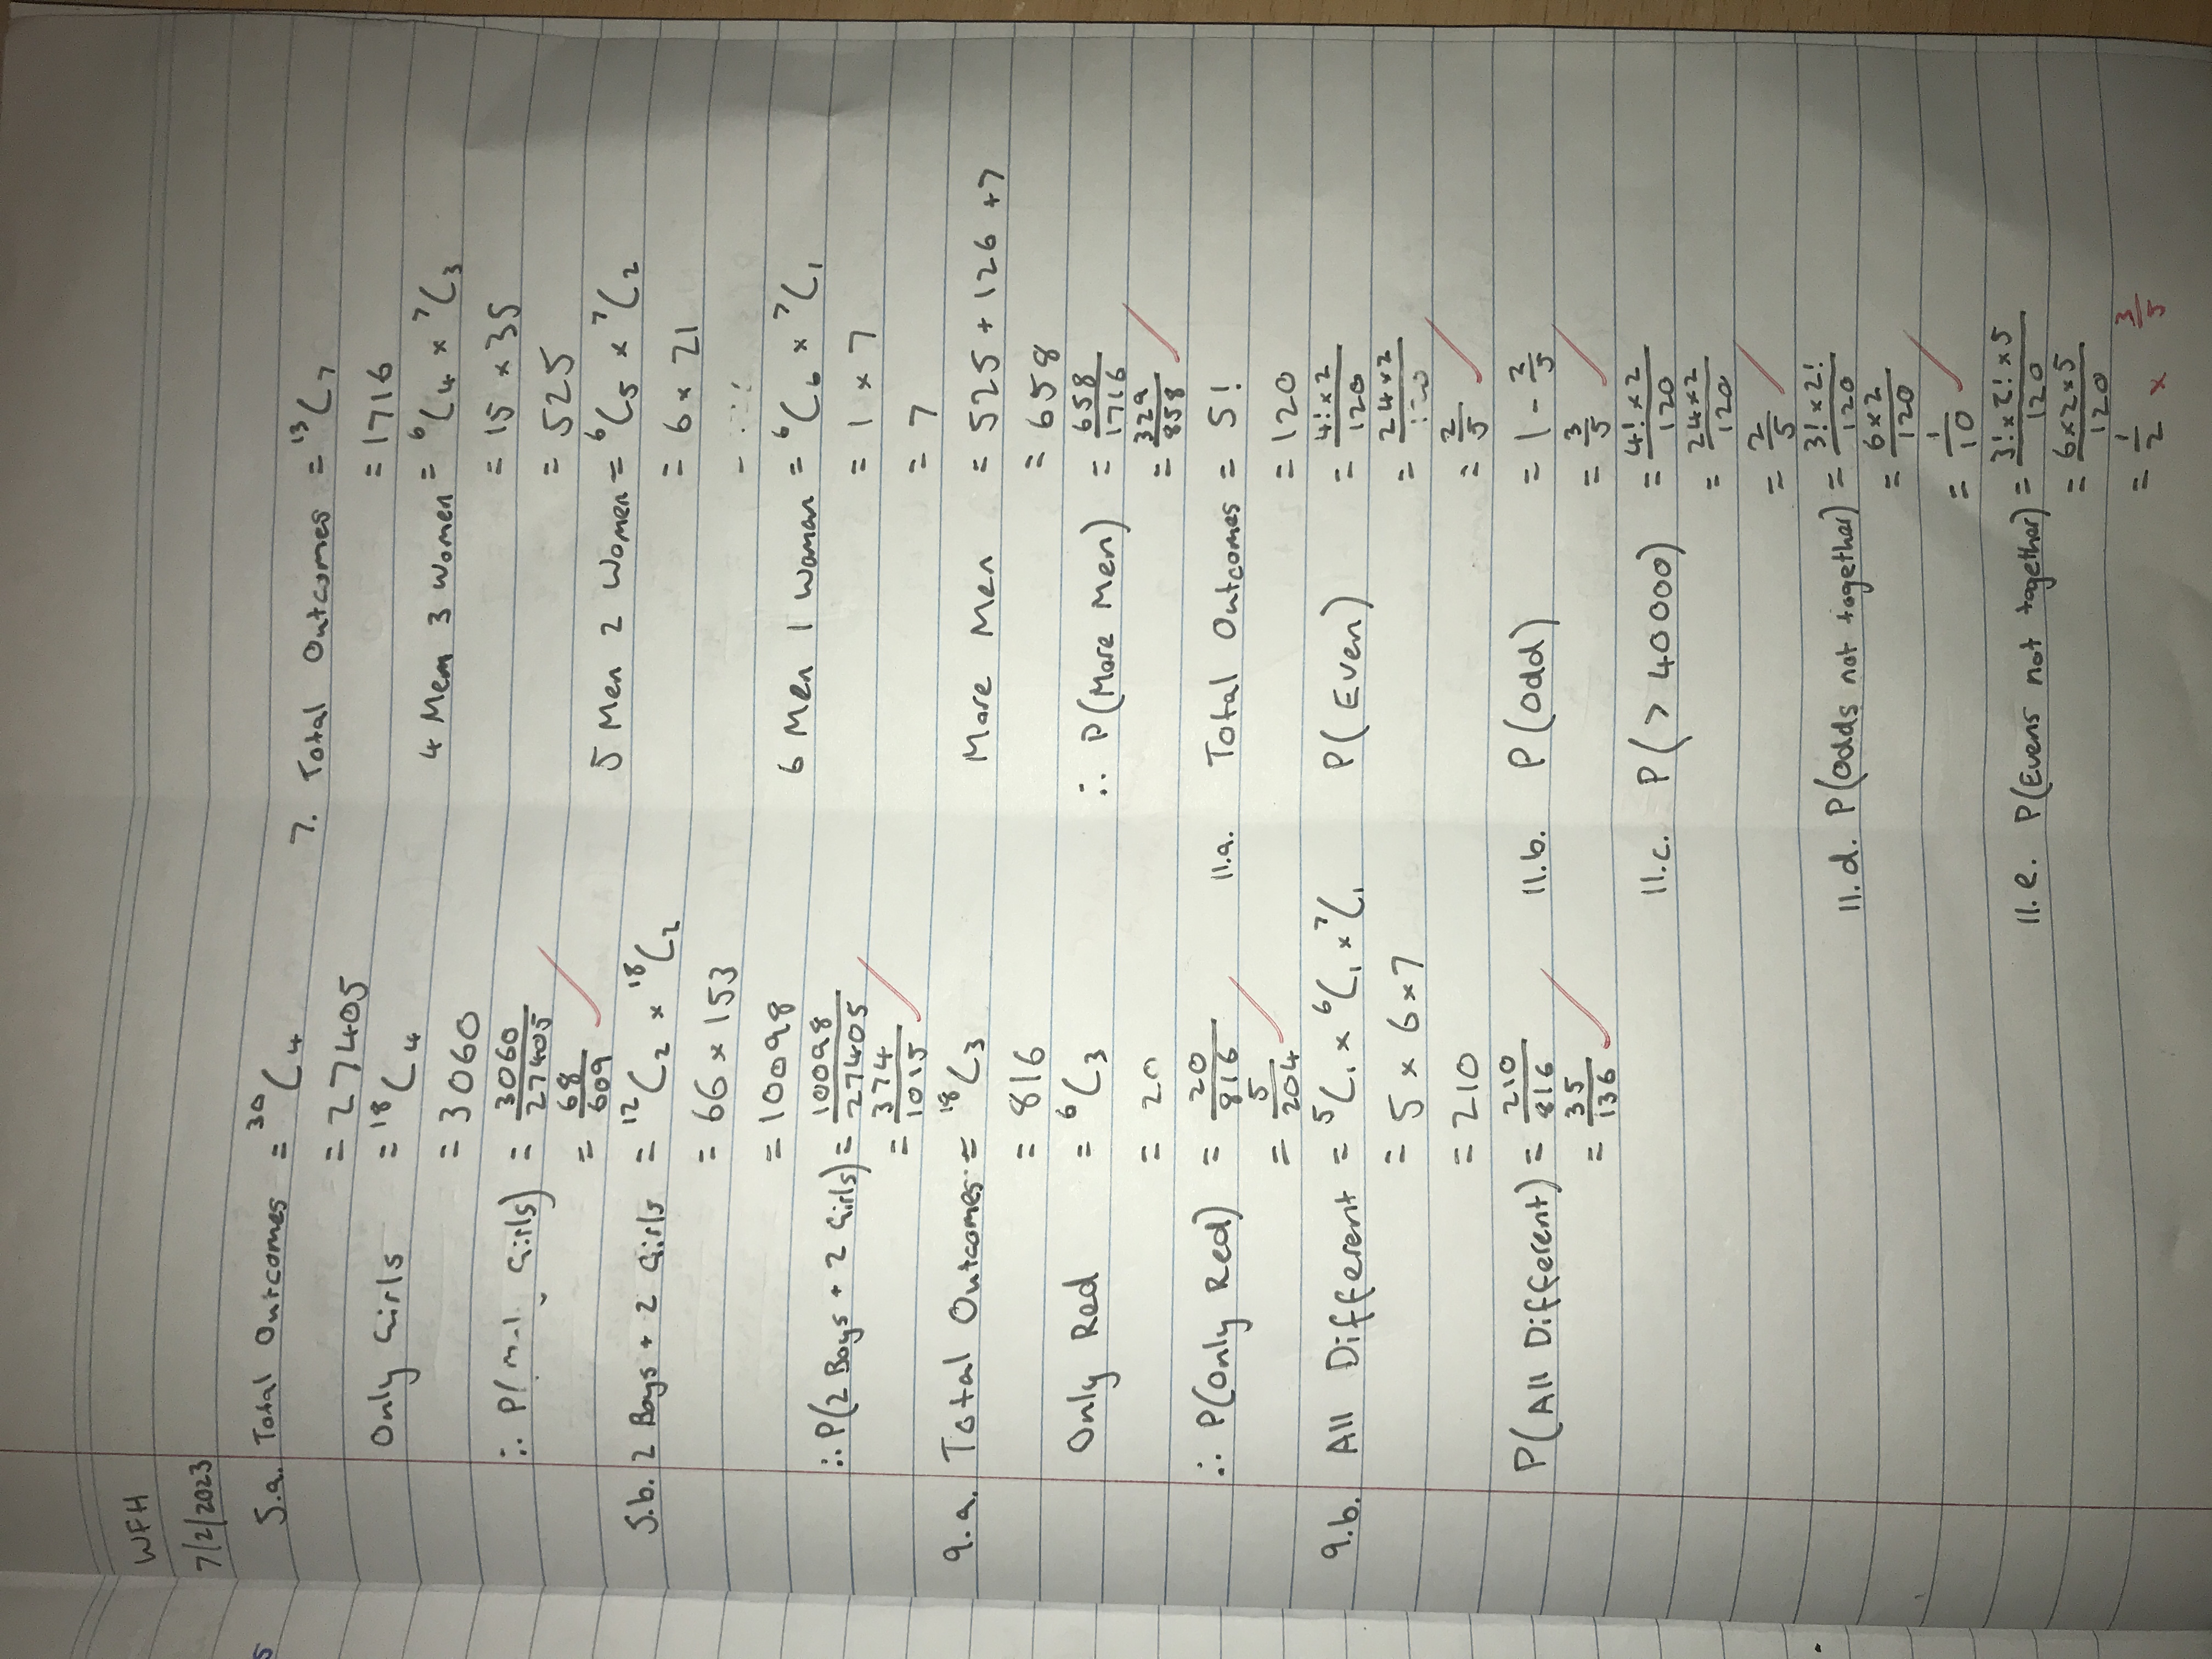 WFH
7/2/2023
5
5.a. Total Outcomes = ³⁰C₄
= 27405
Only Girls = ¹⁸C₄
= 3060
∴ P( Girls) = 3060/27405
= 68/609 ✓
5.b. 2 Boys + 2 Girls = ¹²C₂ × ¹⁸C₂
= 66 × 153
= 10098
∴ P(2 Boys + 2 Girls) = 10098/27405
= 374/1015 ✓
9.a. Total Outcomes = ¹⁸C₃
= 816
Only Red = ⁶C₃
= 20
∴ P(Only Red) = 20/816
= 5/204 ✓
9.b. All Different = ⁵C₁ × ⁶C₁ × ⁷C₁
= 5 × 6 × 7
= 210
P(All Different) = 210/816
= 35/136 ✓
7. Total Outcomes = ¹³C₇
= 1716
4 Men 3 Women = ⁶C₄ × ⁷C₃
= 15 × 35
= 525
5 Men 2 Women = ⁶C₅ × ⁷C₂
= 6 × 21
6 Men 1 Woman = ⁶C₆ × ⁷C₁
= 1 × 7
= 7
More Men = 525 + 126 + 7
= 658
∴ P(More Men) = 658/1716
= 329/858 ✓
11.a. Total Outcomes = 5!
= 120
P(Even) = 4! × 2/120
= 24 × 2/120
= 2/5 ✓
11.b. P(Odd) = 1 - 2/5
= 3/5 ✓
11.c. P(> 40000) = 4! × 2/120
= 24 × 2/120
= 2/5 ✓
11.d. P(Odds not together) = 3! × 2!/120
= 6 × 2/120
= 1/10 ✓
11.e. P(Evens not together) = 3! × 2! × 5/120
= 6 × 2 × 5/120
= 1/2 × 3/5